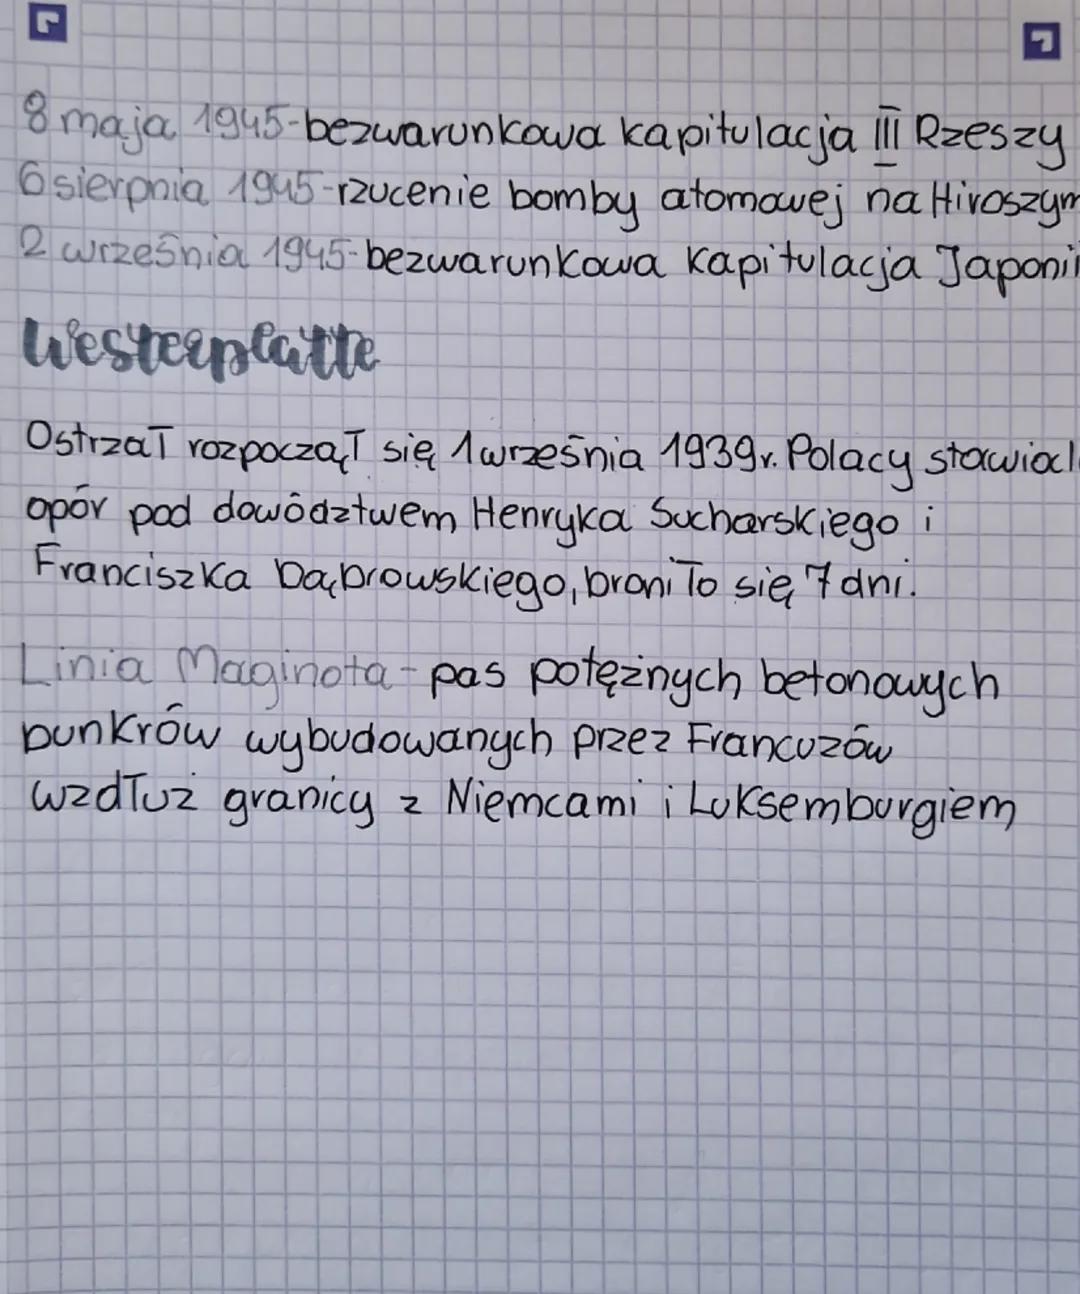 8 maja 1945-bezwarunkowa kapitulacja III Rzeszy
6 sierpnia 1945-rzucenie bomby atomowej na Hiroszym
2 września 1945-bezwarunkowa kapitulacja Japonii
Westerplatte
Ostrzał rozpoczął się 1 września 1939r. Polacy stawiali
opór pod dowództwem Henryka Sucharskiego i
Franciszka Dąbrowskiego, broniło się 7 dni.
Linia Maginota - pas potężnych betonowych
bunkrów wybudowanych przez Francuzów
wzdłuż granicy z Niemcami i Luksemburgiem